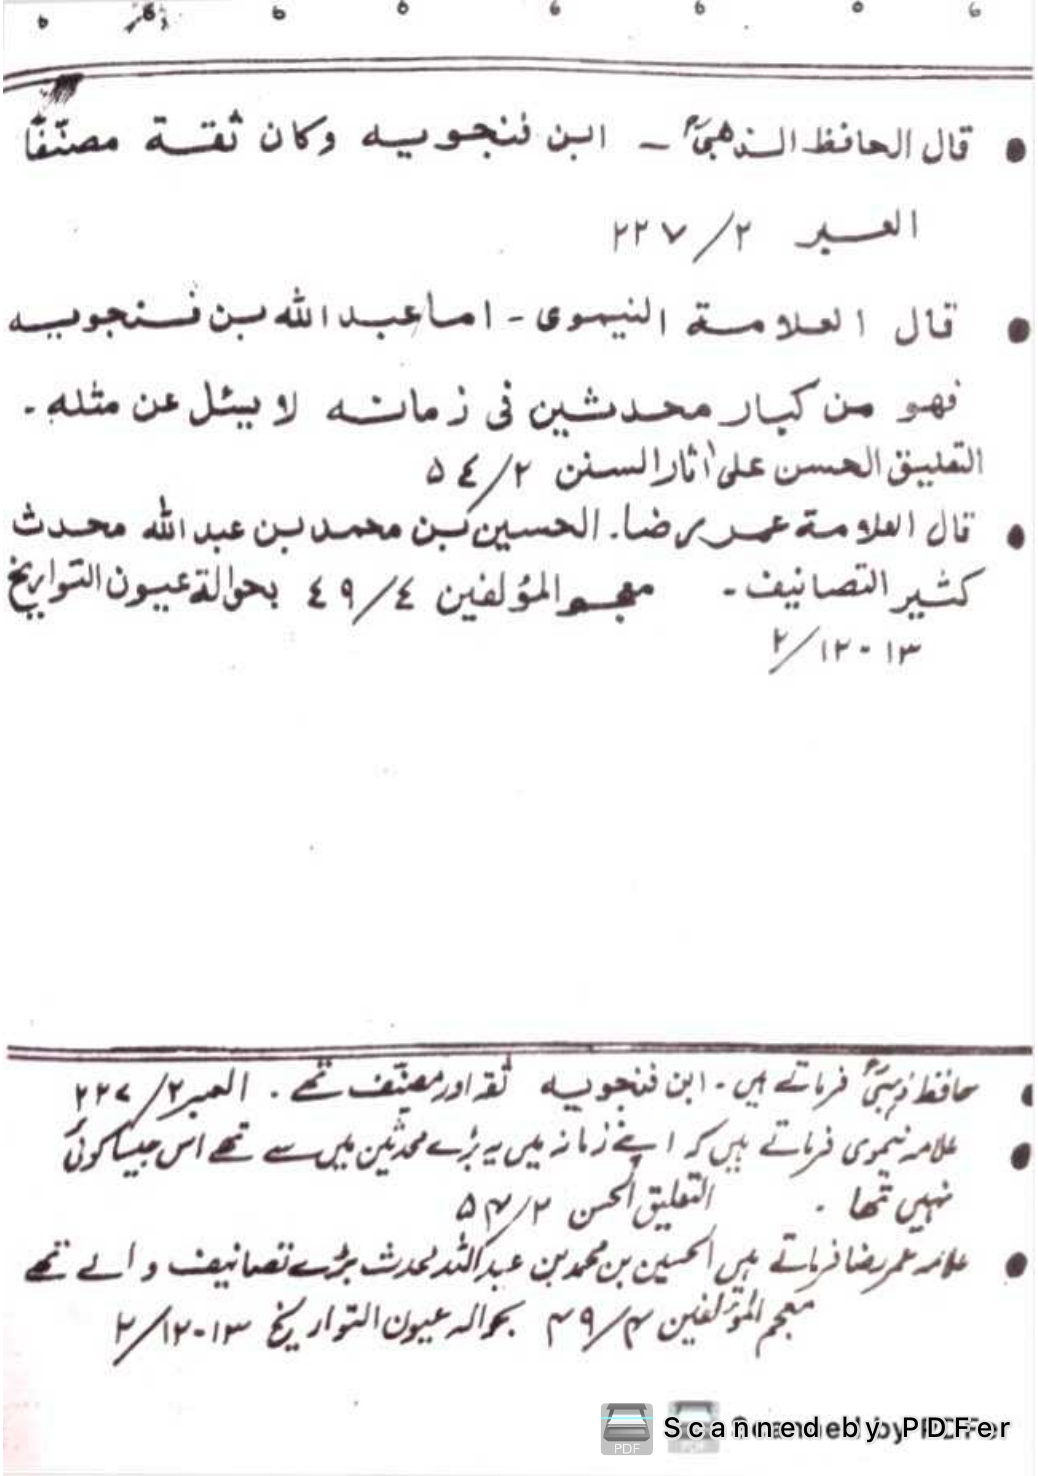 قال الحافظ الذهبیؒ ـ ابن فنجویہ وکان ثقة مصنّفاً
العبر ۲/۲۲۷
قال العلامة النیموی - اما عبد الله بن فنجویہ
فهو من کبار محدثین فی زمانہ لا یسئل عن مثله ـ
التعلیق الحسن علی اٰثار السنن ۲/٥٤
قال العلامة عمر رضا. الحسین بن محمد بن عبد الله محدث
کثیر التصانیف ـ معجم المؤلفین ٤/٤٩ بحوالة عیون التواریخ
۱۳-۱۲/۲
حافظ ذہبیؒ فرماتے ہیں ـ ابن فنجویہ ثقہ اور مصنّف تھے ـ العبر ۲/۲۲۷
علامہ نیموی فرماتے ہیں کہ اپنے زمانہ میں یہ بڑے محدثین میں سے تھے اس جیسا کوئی
نہیں تھا ـ التعلیق الحسن ۲/۵۴
علامہ عمر رضا فرماتے ہیں الحسین بن محمد بن عبد اللہ محدث بڑے تصانیف والے تھے
معجم المؤلفین ۴/۴۹ بحوالہ عیون التواریخ ۱۳-۱۲/۲
Scanned by PDFer